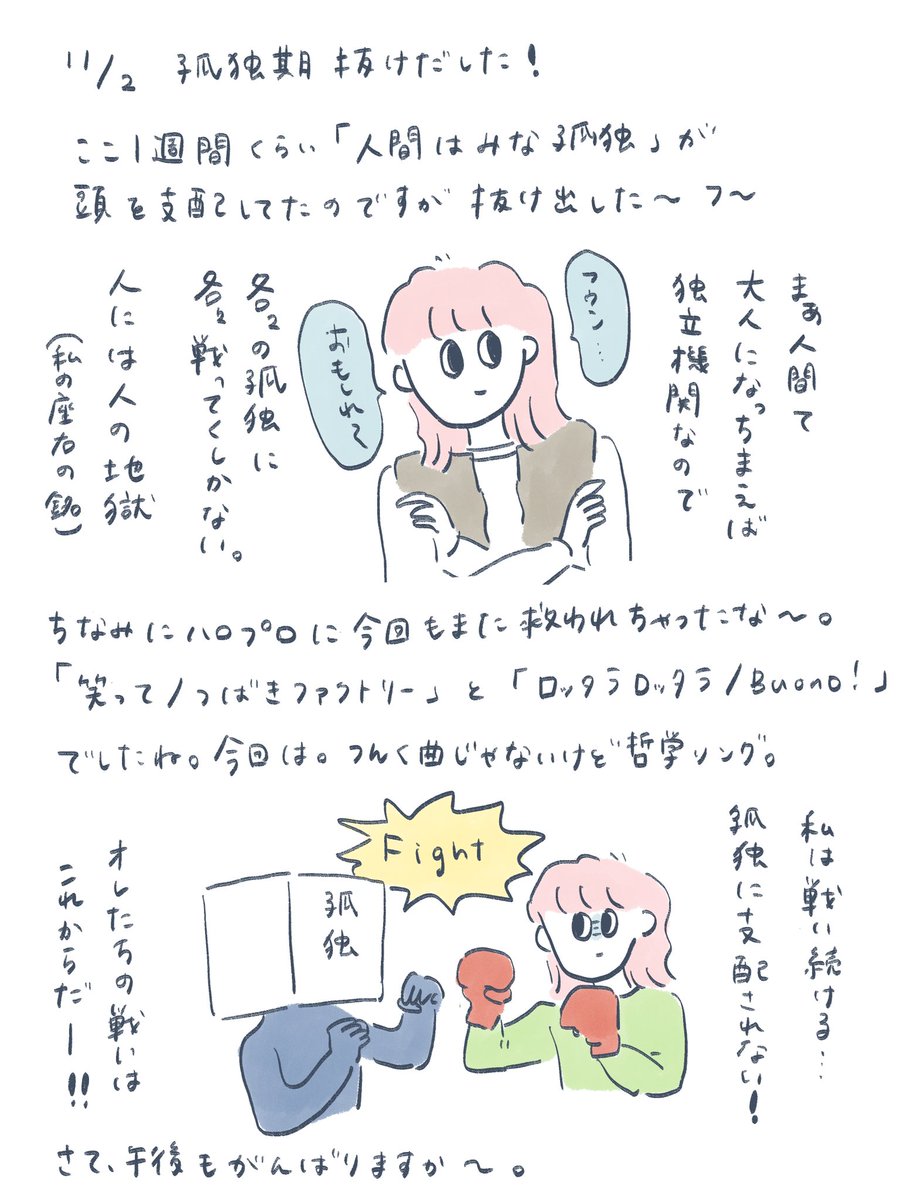 11/2 孤独期抜けだした!
ここ1週間くらい「人間はみな孤独」が
頭を支配してたのですが抜け出した〜フ〜
まぁ人間て
大人になっちまえば
独立機関なので
フゥン…
おもしれ〜
各々の孤独に
各々戦ってくしかない。
人には人の地獄
(私の座右の銘)
ちなみにハロプロに今回もまた救われちゃったな〜。
「笑って/つばきファクトリー」と「ロッタラロッタラ/Buono!」
でしたね。今回は。つんく曲じゃないけど哲学ソング。
私は戦い続ける…
孤独に支配されない!
Fight
孤独
オレたちの戦いは
これからだー!!
さて、午後もがんばりますか〜。